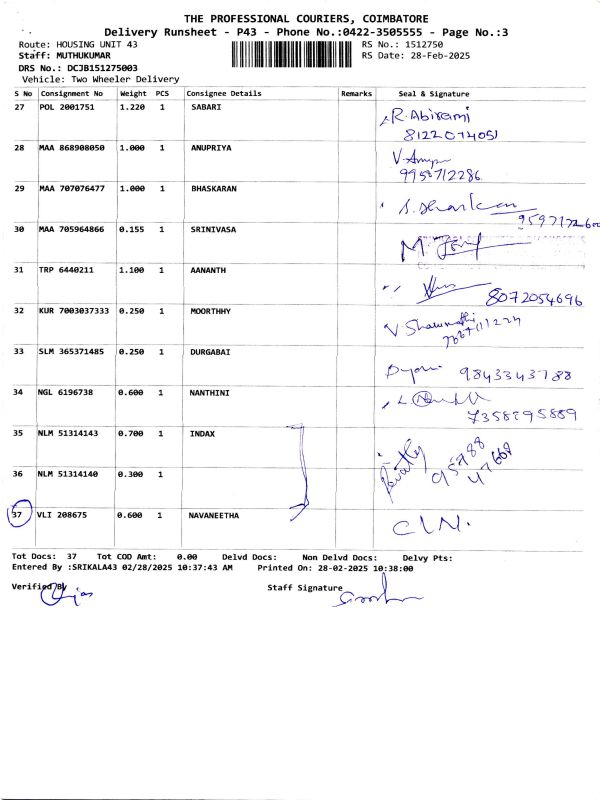 THE PROFESSIONAL COURIERS, COIMBATORE
Delivery Runsheet - P43 - Phone No.:0422-3505555 - Page No.:3
Route: HOUSING UNIT 43 RS No.: 1512750
Staff: MUTHUKUMAR RS Date: 28-Feb-2025
DRS No.: DCJB151275003
Vehicle: Two Wheeler Delivery
S No Consignment No Weight PCS Consignee Details Remarks Seal & Signature
27 POL 2001751 1.220 1 SABARI R. Abirami
8122074051
28 MAA 868908050 1.000 1 ANUPRIYA
9959712286
29 MAA 707076477 1.000 1 BHASKARAN
30 MAA 705964866 0.155 1 SRINIVASA
31 TRP 6440211 1.100 1 AANANTH
8072054696
32 KUR 7003037333 0.250 1 MOORTHHY
33 SLM 365371485 0.250 1 DURGABAI
9843343788
34 NGL 6196738 0.600 1 NANTHINI
35 NLM 51314143 0.700 1 INDAX
36 NLM 51314140 0.300 1
37 VLI 208675 0.600 1 NAVANEETHA
Tot Docs: 37 Tot COD Amt: 0.00 Delvd Docs: Non Delvd Docs: Delvy Pts:
Entered By :SRIKALA43 02/28/2025 10:37:43 AM Printed On: 28-02-2025 10:38:00
Verified By Staff Signature